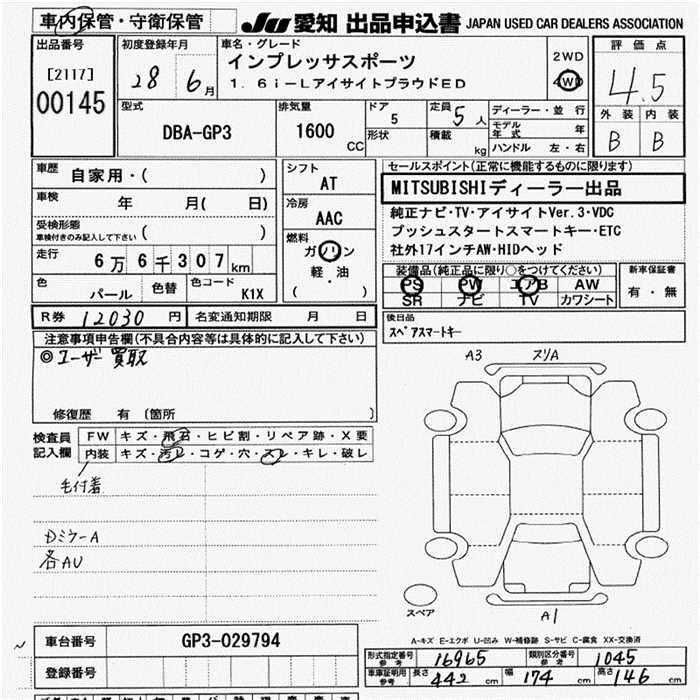 車内保管・守衛保管
JU 愛知 出品申込書 JAPAN USED CAR DEALERS ASSOCIATION
出品番号
[2117]
00145
初度登録年月
28 6月
車名・グレード
インプレッサスポーツ
1.6i-LアイサイトプラウドED
2WD
4WD
評価点
4.5
外装 内装
B B
型式
DBA-GP3
排気量
1600 CC
ドア
5
形状
定員
5人
積載
kg
ディーラー・並行
モデル年式 年
ハンドル 左・右
車歴
自家用・( )
車検
年 月( 日)
受検形態
車検付きのみ記入して下さい ( )
走行
6万6千307km
色
パール
色替
色コード
K1X
シフト
AT
冷房
AAC
燃料
ガソリン
軽・油
( )
セールスポイント(正常に機能するものに限ります)
MITSUBISHIディーラー出品
純正ナビ・TV・アイサイトVer.3・VDC
プッシュスタートスマートキー・ETC
社外17インチAW・HIDヘッド
装備品(純正品に限り○をつけてください)
PS PW エアB AW
SR ナビ TV カワシート
新車保証書
有・無
R券 12030 円 名変通知期限 月 日
後日品
スペアスマートキー
注意事項申告欄(不具合内容等は具体的に記入して下さい)
◎ユーザー買取
修復歴 有 〔箇所 〕
検査員
記入欄
FW キズ・飛石・ヒビ割・リペア跡・X要
内装 キズ・汚レ・コゲ・穴・スレ・キレ・破レ
毛付着
Dミラー A
各AU
A3 スリA
スペア
A1
A-キズ E-エクボ U-凹み W-補修跡 S-サビ C-腐食 XX-交換済
車台番号 GP3-029794
登録番号
形式指定番号
参考
16965
類別区分番号
参考
1045
車庫証明用
参考
長さ 442 cm 幅 174 cm 高さ 146 cm